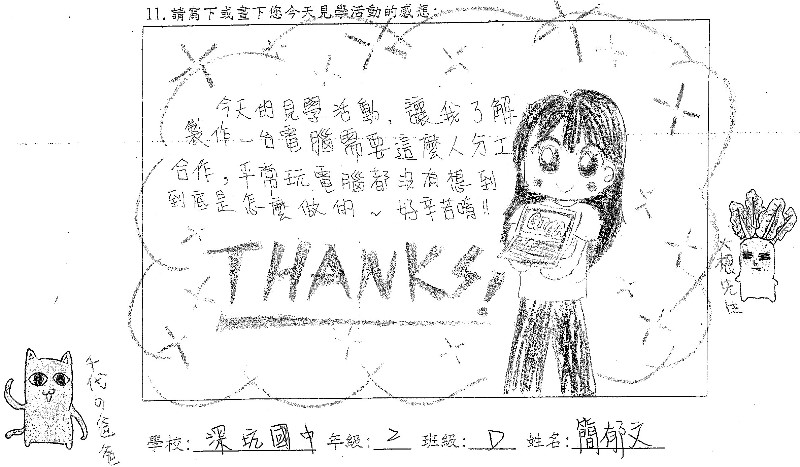 11. 請寫下或畫下您今天見學活動的感想:
今天的見學活動,讓我了解
製作一台電腦需要這麼人分工
合作,平常玩電腦都沒有想到
到底是怎麼做的~好辛苦唷!!
THANKS!
大根先生
千代の爸爸
學校: 深坑國中 年級: 2 班級: D 姓名: 簡郁文